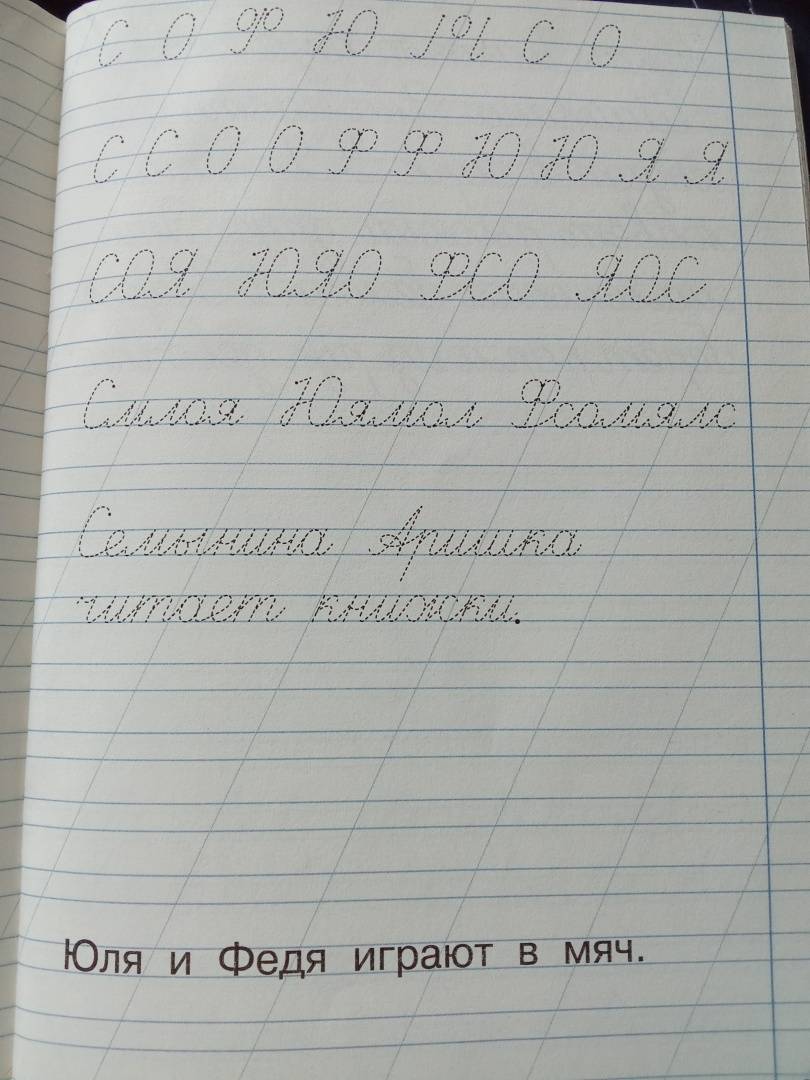 С О Ф Ю С О
С С О О Ф Ф Ю Ю Я Я
СОЯ ЮЯО ФСО ЯОС
Смлоя Юямол Фсомялс
Семынина Аришка
читает книжки.
Юля и Федя играют в мяч.